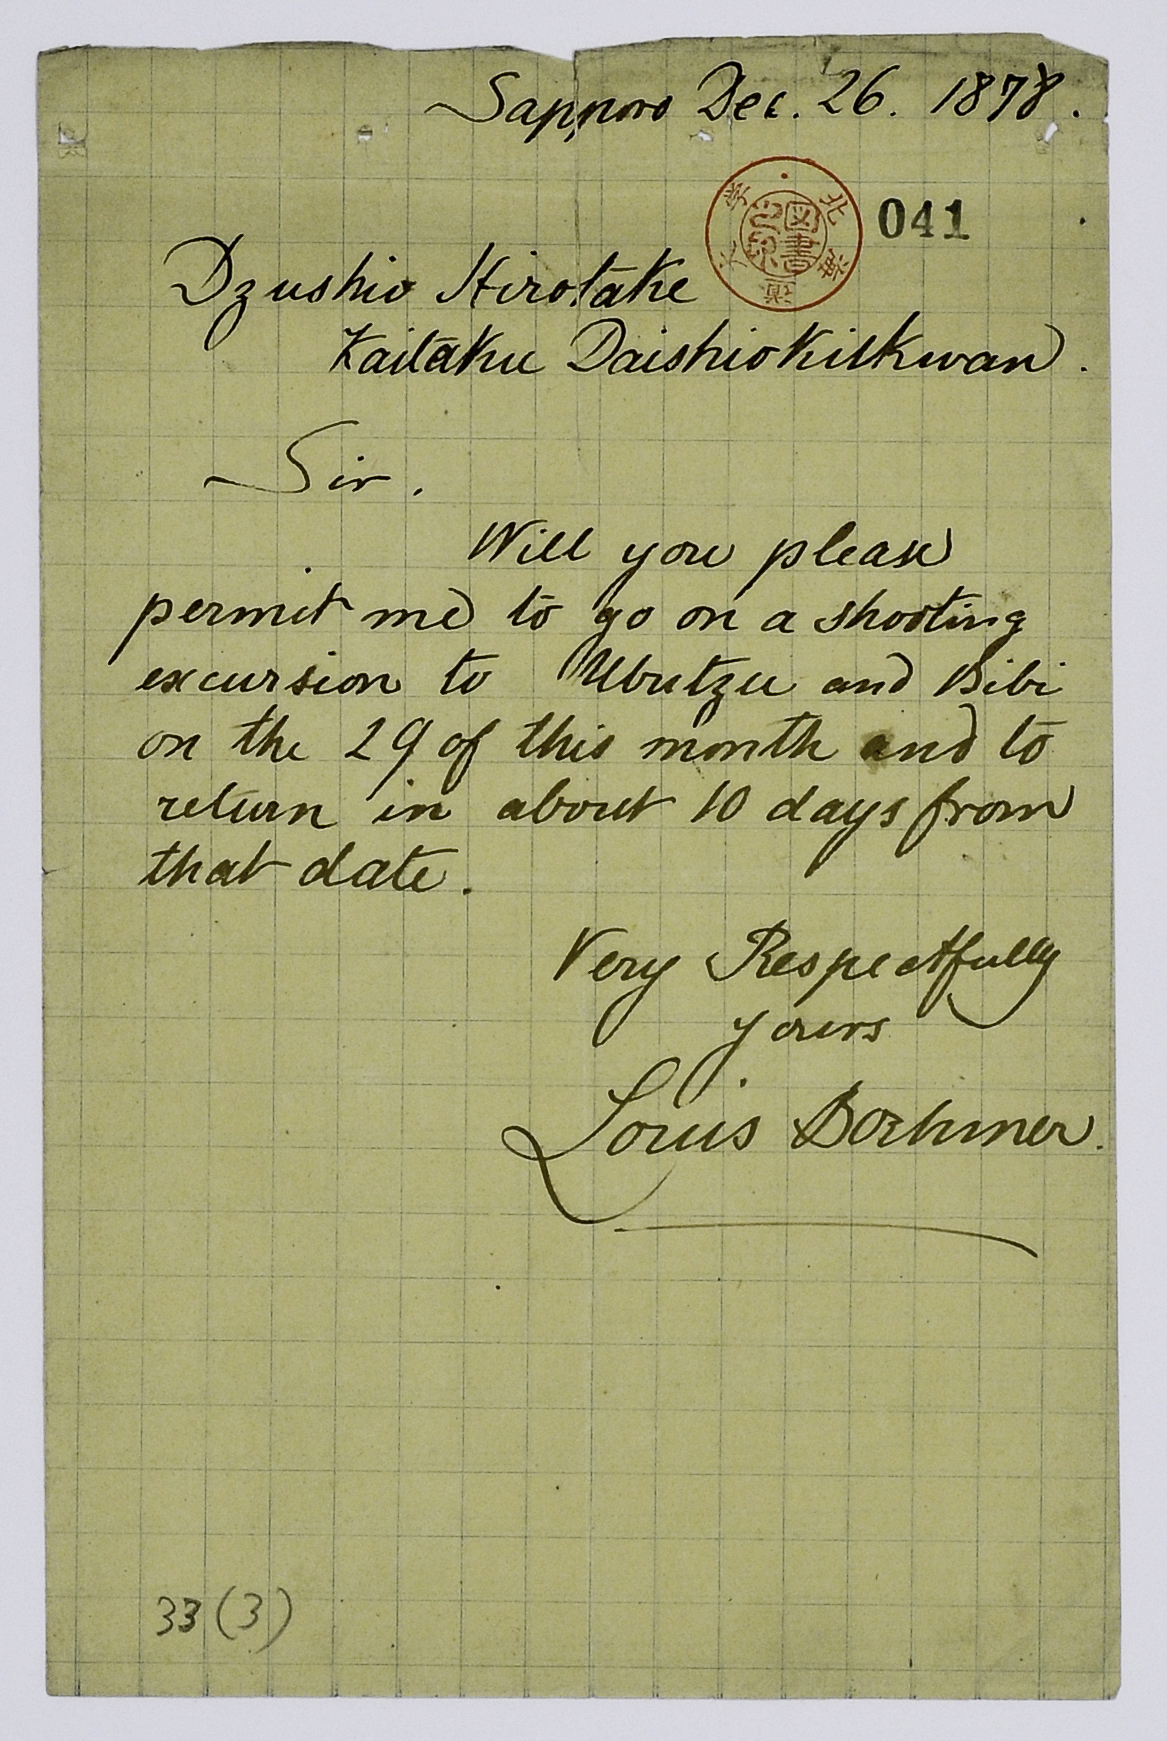 Sapporo Dec. 26. 1878.
北海道大学
図書之印
041
Dzushio Hirotake
Kaitaku Daishiokikwan.
Sir.
Will you please
permit me to go on a shooting
excursion to Ubutzu and Bibi
on the 29 of this month and to
return in about 10 days from
that date.
Very Respectfully
yours
Louis Boehmer.
33 (3)